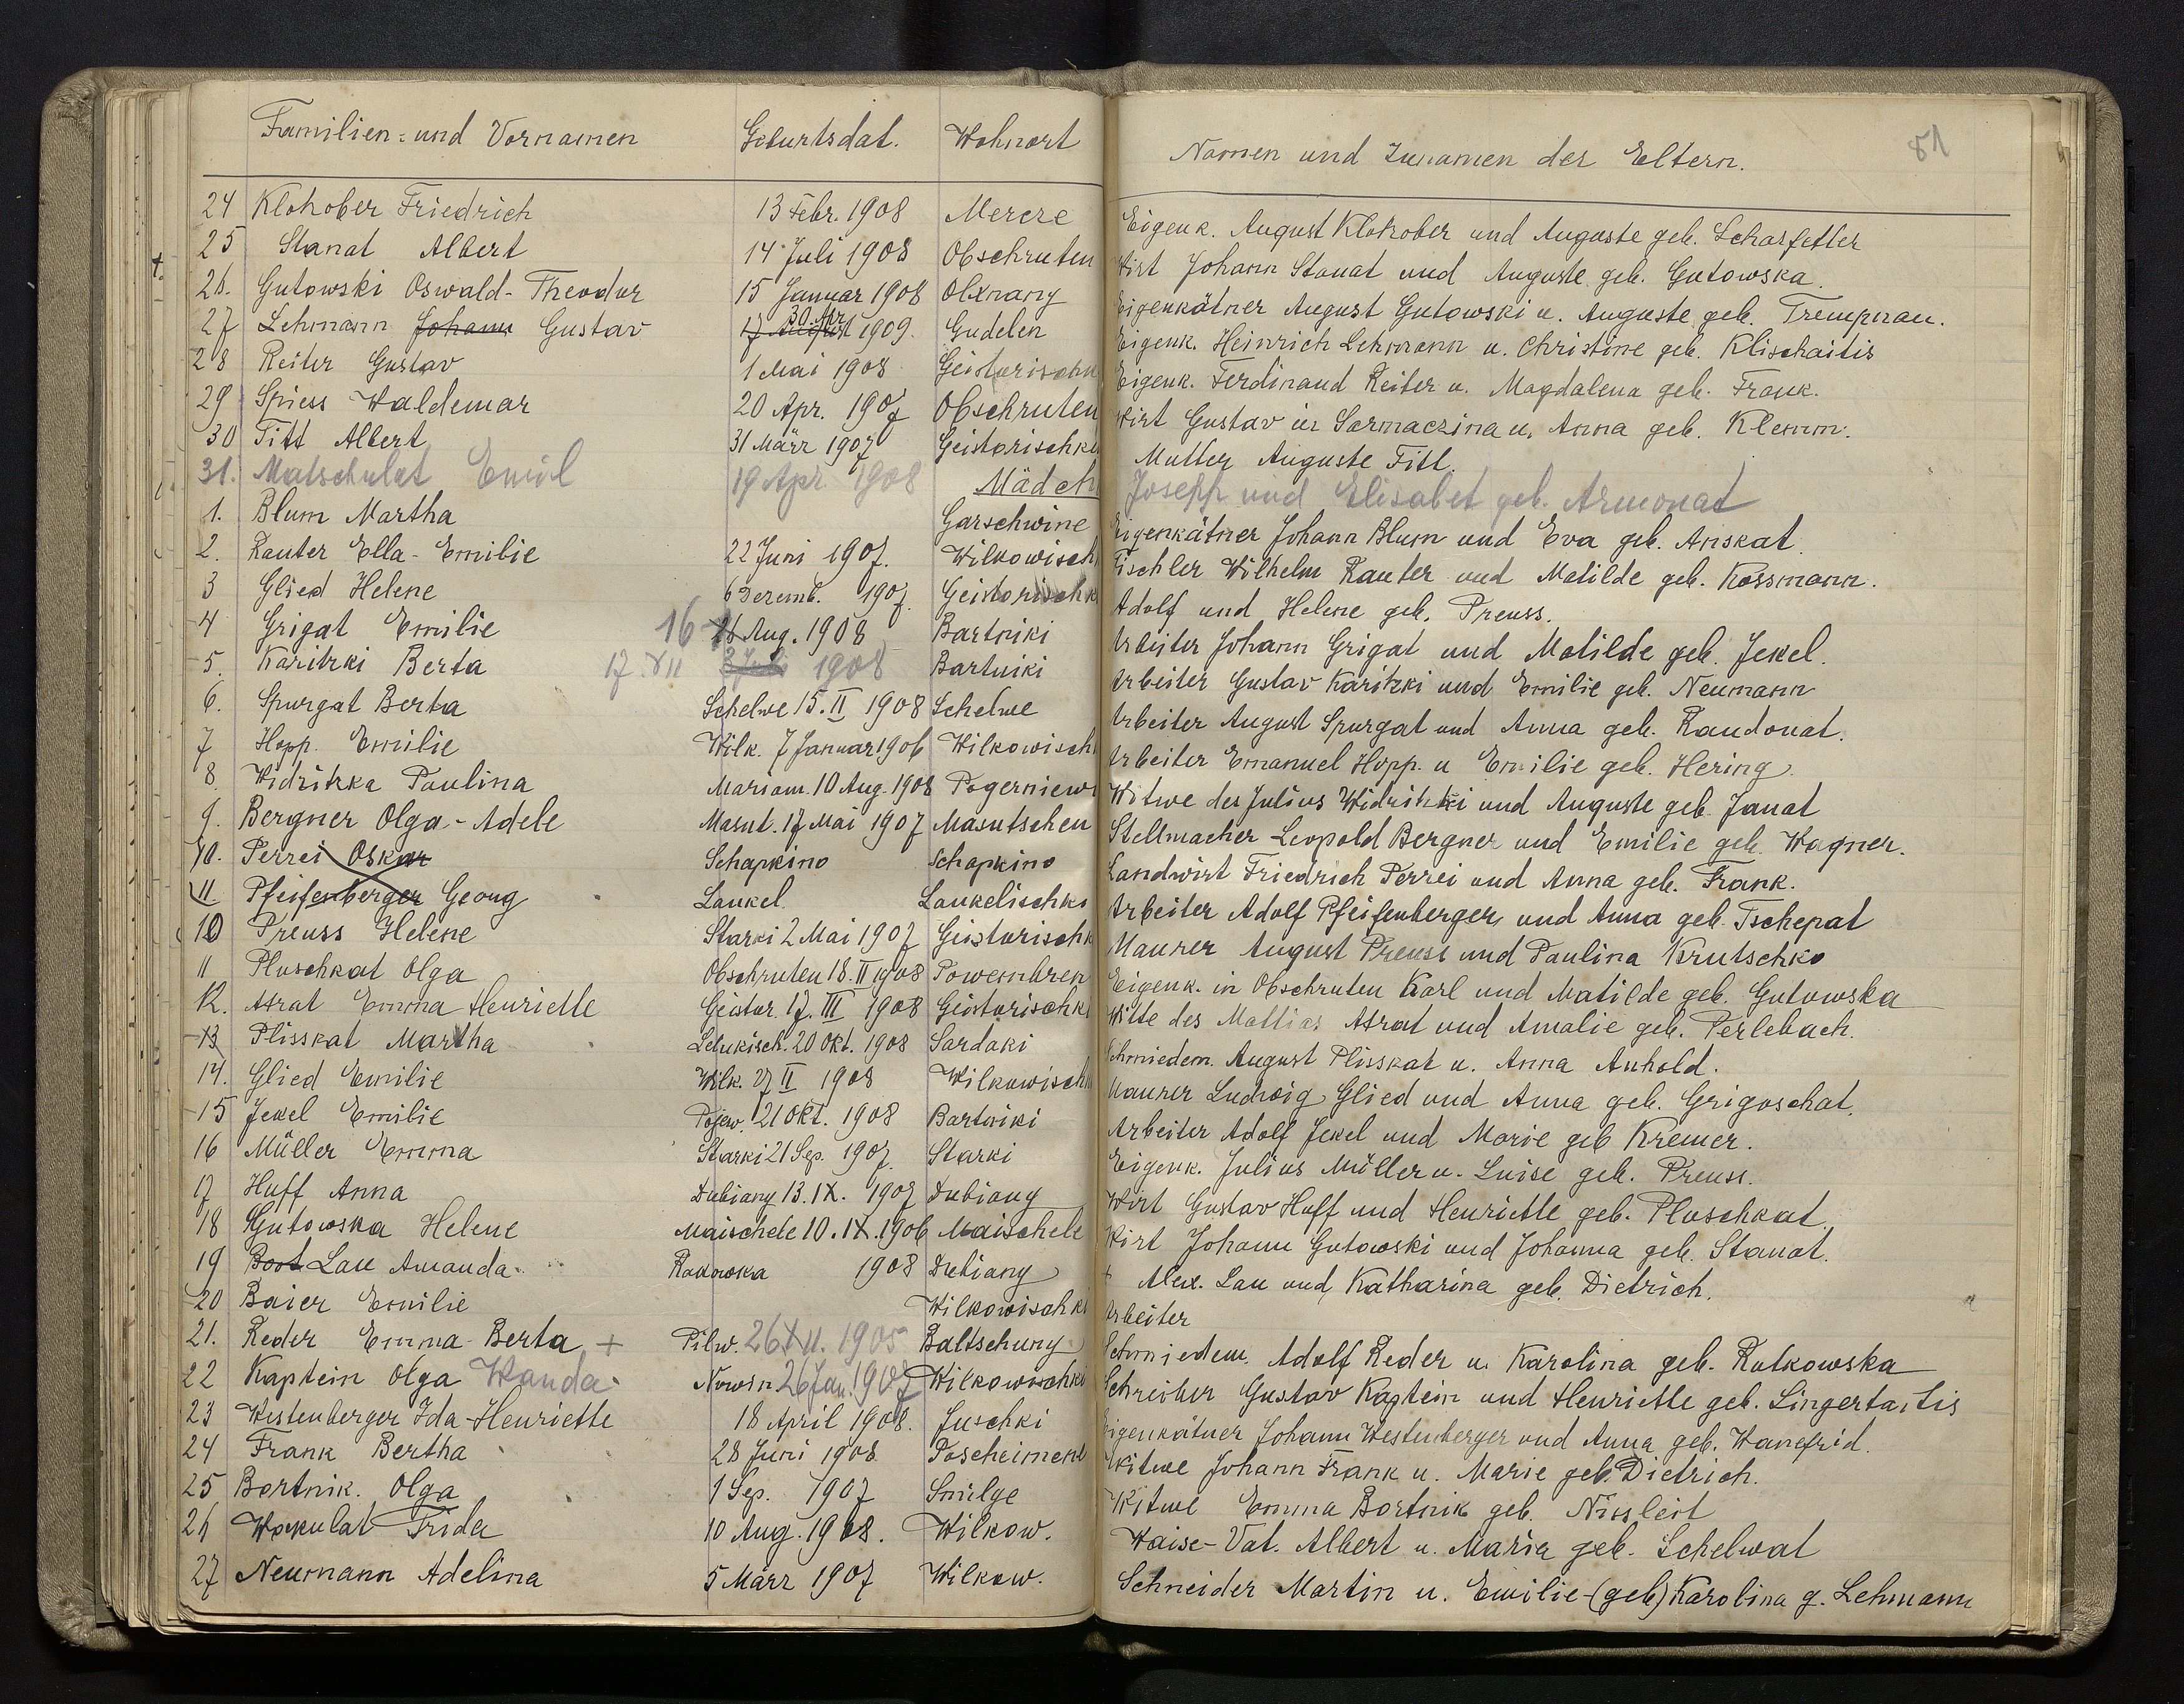 Familien- und Vornamen Geburtsdat. Wohnort Namen und Zunamen der Eltern. 81
24 Klokober Friedrich 13 Febr. 1908 Merere Eigenk. August Klokober und Auguste geb. Scharfetter
25 Stanat Albert 14 Juli 1908 Obschruten Wirt Johann Stanat und Auguste geb. Gutowska.
26. Gutowski Oswald-Theodor 15 Januar 1908 Olxnany Eigenkätner August Gutowski u. Auguste geb. Trempnau.
27 Lehmann Johann Gustav 17 August 30. Apr 1909. Gudelen Eigenk. Heinrich Lehmann u. Christine geb. Klischaitis
28 Reiter Gustav 1 Mai 1908 Geistorischk Eigenk. Ferdinand Reiter u. Magdalena geb. Frank.
29 Spiess Waldemar 20 Apr. 1907 Obschruten Wirt Gustav in Sarmaczina u. Anna geb. Klemm.
30 Titt Albert 31 März 1907 Geistorischk Mutter Auguste Titt.
31. Matschulat Emil 19 Apr 1908 Joseph und Elisabet geb. Armonat
Mädch
1. Blum Martha Garschwine Eigenkätner Johann Blum und Eva geb. Anskat.
2. Rauter Ella-Emilie 22 Juni 1907. Wilkowisch Tischler Wilhelm Rauter und Matilde geb. Kossmann.
3 Glied Helene 6 Dezemb. 1907. Geistorischk Adolf und Helene geb. Preuss.
4 Grigat Emilie 16 Aug. 1908 Bartniki Arbeiter Johann Grigat und Matilde geb. Jekel.
5. Karitzki Berta 17. XII 3 Juli 1908 Bartniki Arbeiter Gustav Karitzki und Emilie geb. Neumann
6. Spurgat Berta Schelwe 15. II 1908 Schelwe Arbeiter August Spurgat und Anna geb. Raudonat.
7 Hopp. Emilie Wilk. 7 Januar 1906 Wilkowisch Arbeiter Emanuel Hopp. u Emilie geb. Hering.
8. Widritzka Paulina Mariam. 10 Aug. 1908 Pogerniew Witwe des Julius Widritzki und Auguste geb. Janat
9. Bergner Olga-Adele Masut. 17 Mai 1907 Masutschen Stellmacher Leopold Bergner und Emilie geb. Wagner.
10. Perrei Oskar Schapkino Schapkino Landwirt Friedrich Perrei und Anna geb. Frank.
11 Pfeifenberger Georg Laukel. Laukelischki Arbeiter Adolf Pfeifenberger und Anna geb. Tschepat
10 Preuss Helene Starki 2 Mai 1907 Geistorischk Maurer August Preuss und Paulina Krutschko
11 Pluschkat Olga Obschruten 18. II 1908 Powembren Eigenk. in Obschruten Karl und Matilde geb. Gutowska
12. Asrat Emma Henriette Geistor. 17. III 1908 Geistorischk Witte des Mattias Asrat und Amalie geb. Perlebach.
13 Plisskat Martha Lelukisch. 20 Okt. 1908 Sardaki Schmiedem. August Plisskat u. Anna Anhold.
14. Glied Emilie Wilk. 27 II 1908 Wilkowisch Maurer Ludwig Glied und Anna geb. Grigoschat.
15 Jekel Emilie Pojew. 21 Okt. 1908 Bartniki Arbeiter Adolf Jekel und Marie geb Kremer.
16 Müller Emma Starki 21 Sep. 1907. Starki Eigenk. Julius Müller u. Luise geb. Preuss.
17 Huff Anna Dubiany 13. IX. 1907 Dubiany Wirt Gustav Huff und Henriette geb. Pluschkat.
18 Gutowska Helene Maischele 10. IX. 1906 Maischele Wirt Johann Gutowski und Johanna geb. Stanat.
19 Boot Lau Amanda Rakowka 1908 Dubiany + Alex. Lau und Katharina geb. Dietrich.
20 Baier Emilie Wilkowischk Arbeiter
21. Reder Emma-Berta + Pilw. 26 XII. 1905 Baltschuny Schmiedem. Adolf Reder u. Karolina geb. Rutkowska
22 Kaptein Olga Wanda Nowin 26 Jan. 1907 Wilkowischki Schreiber Gustav Kaptein und Henriette geb. Lingertaitis
23 Westenberger Ida-Henriette 18 April 1908. Juschki Eigenkätner Johann Westenberger und Anna geb. Wanefrid.
24 Frank Bertha 28 Juni 1908 Poscheimene Witwe Johann Frank u. Marie geb. Dietrich.
25 Bortnik. Olga 1 Sep. 1907 Smilge Witwe Emma Bortnik geb. Nissleit
26 Wokulat Frida 10 Aug. 1908. Wilkow. Waise-Vat. Albert u. Maria geb. Schelwat
27 Neumann Adelina 5 März 1907 Wilkow. Schneider Martin u. Emilie-(geb) Karolina g. Lehmann